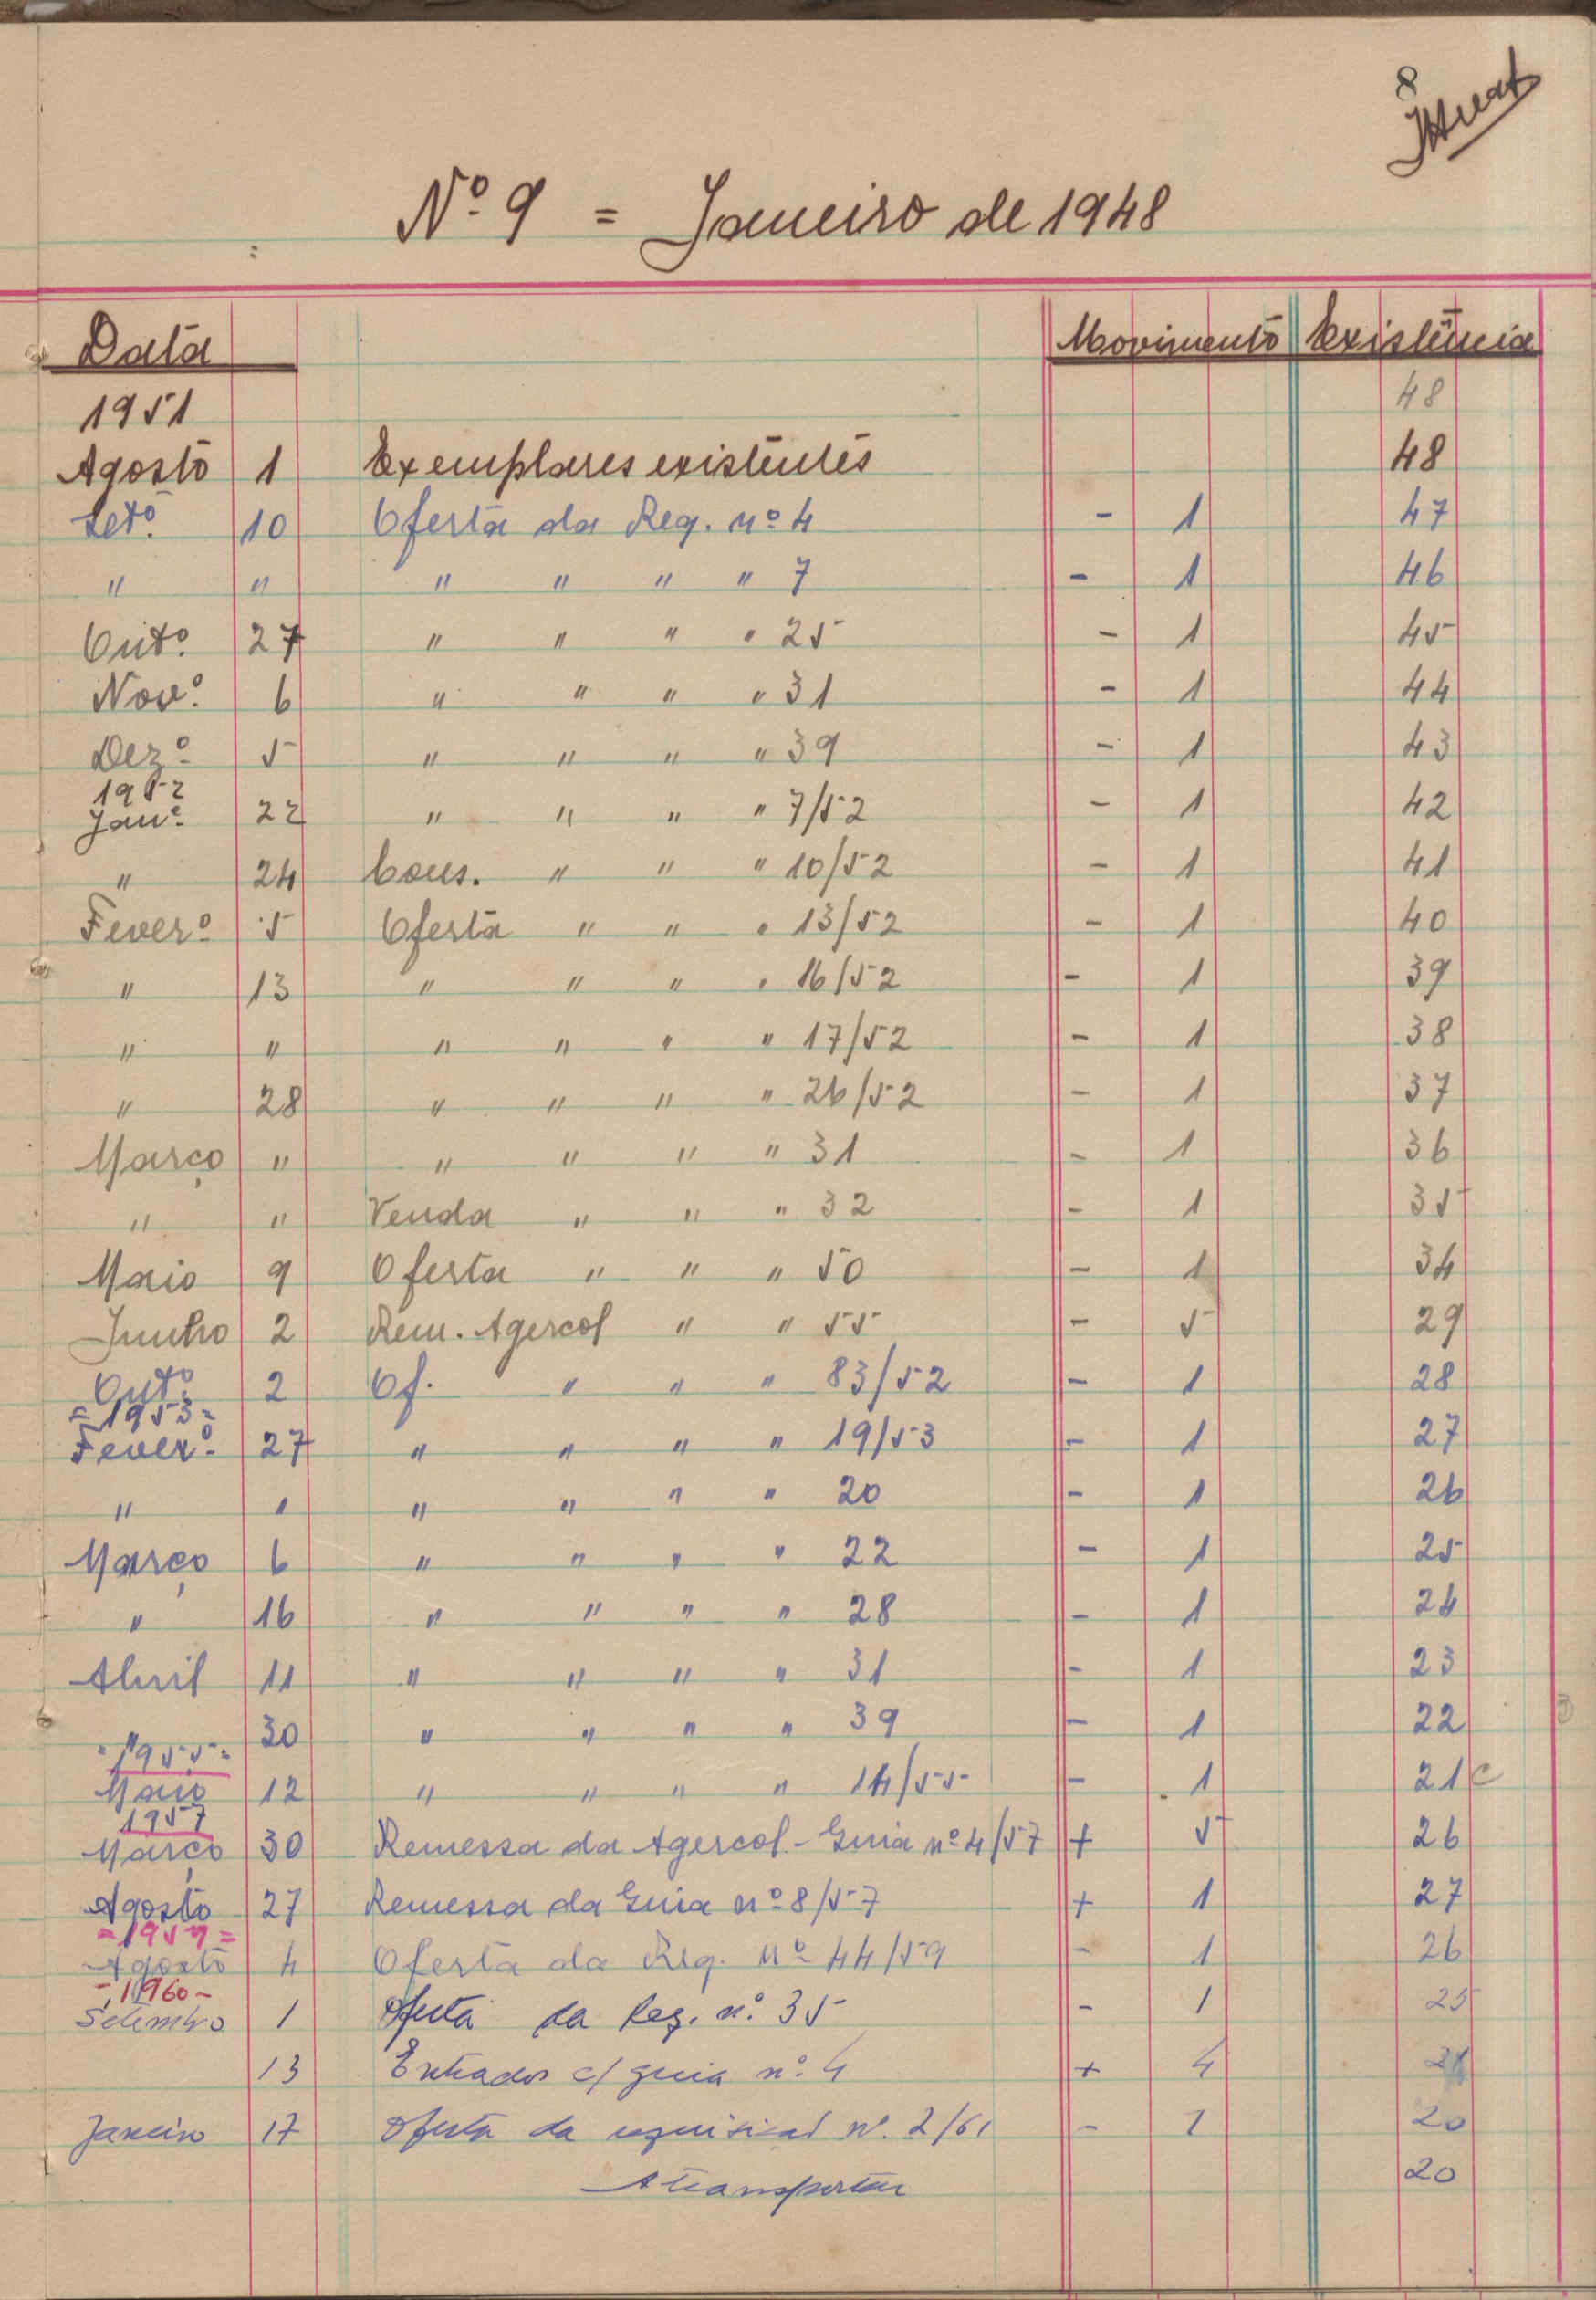 8
Nº 9 = Janeiro de 1948
Data Movimento Existência
1951 48
Agosto 1 Exemplares existentes 48
Setº. 10 Oferta da Req. nº 4 - 1 47
" " " " " " 7 - 1 46
Outº. 27 " " " " 25 - 1 45
Novº. 6 " " " " 31 - 1 44
Dezº. 5 " " " " 39 - 1 43
1952
Janº. 22 " " " " 7/52 - 1 42
" 24 Cons. " " " 10/52 - 1 41
Feverº. 5 Oferta " " " 13/52 - 1 40
" 13 " " " " 16/52 - 1 39
" " " " " " 17/52 - 1 38
" 28 " " " " 26/52 - 1 37
Março " " " " " 31 - 1 36
" " Venda " " " 32 - 1 35
Maio 9 Oferta " " " 50 - 1 34
Junho 2 Rem. Agercol " " 55 - 5 29
Outº. 2 Of. " " " 83/52 - 1 28
= 1953 =
Feverº. 27 " " " " 19/53 - 1 27
" " " " " " 20 - 1 26
Março 6 " " " " 22 - 1 25
" 16 " " " " 28 - 1 24
Abril 11 " " " " 31 - 1 23
" 30 " " " " 39 - 1 22
= 1955 =
Maio 12 " " " " 14/55 - 1 21 c
1957
Março 30 Remessa da Agercol - Guia nº 4/57 + 5 26
Agosto 27 Remessa da Guia nº 8/57 + 1 27
= 1959 =
Agosto 4 Oferta da Req. nº 44/59 - 1 26
- 1960 -
Setembro 1 Oferta da Req. nº 35 - 1 25
13 Entrados c/ guia nº 4 + 4
Janeiro 17 Oferta da nº 2/61 - 1 20
A transportar 20